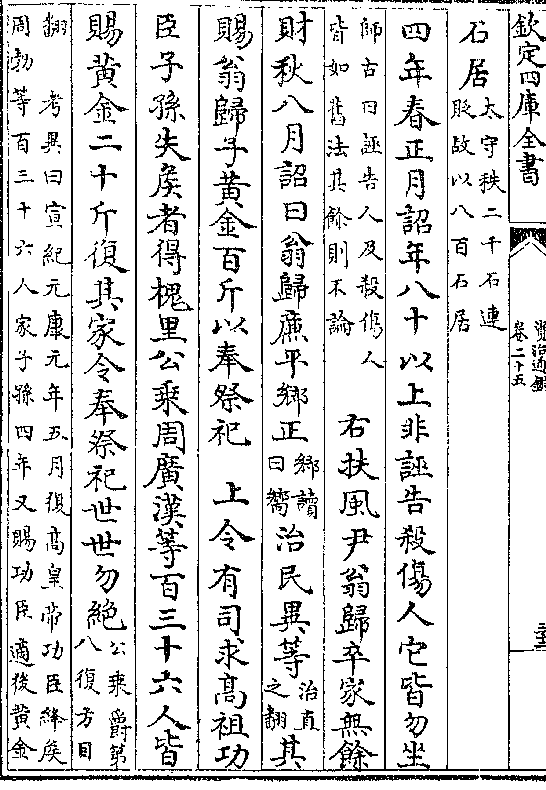 欽定四庫全書
資治通鑑
卷二十五
石居
太守秩二千石連
貶故以八百石居
四年春正月詔年八十以上非誣告殺傷人它皆勿坐
師古曰誣告人及殺傷人
皆如舊法其餘則不論
右扶風尹翁歸卒家無餘
財秋八月詔曰翁歸廉平鄉正
鄉讀
曰嚮
治民異等
治直
之翻
其
賜翁歸子黃金百斤以奉祭祀 上令有司求高祖功
臣子孫失侯者得槐里公乘周廣漢等百三十六人皆
賜黃金二十斤復其家令奉祭祀世世勿絶
公乘爵第
八復方目
翻 考異曰宣紀元康元年五月復高皇帝功臣絳侯
周勃等百三十六人家子孫四年又賜功臣適後黃金